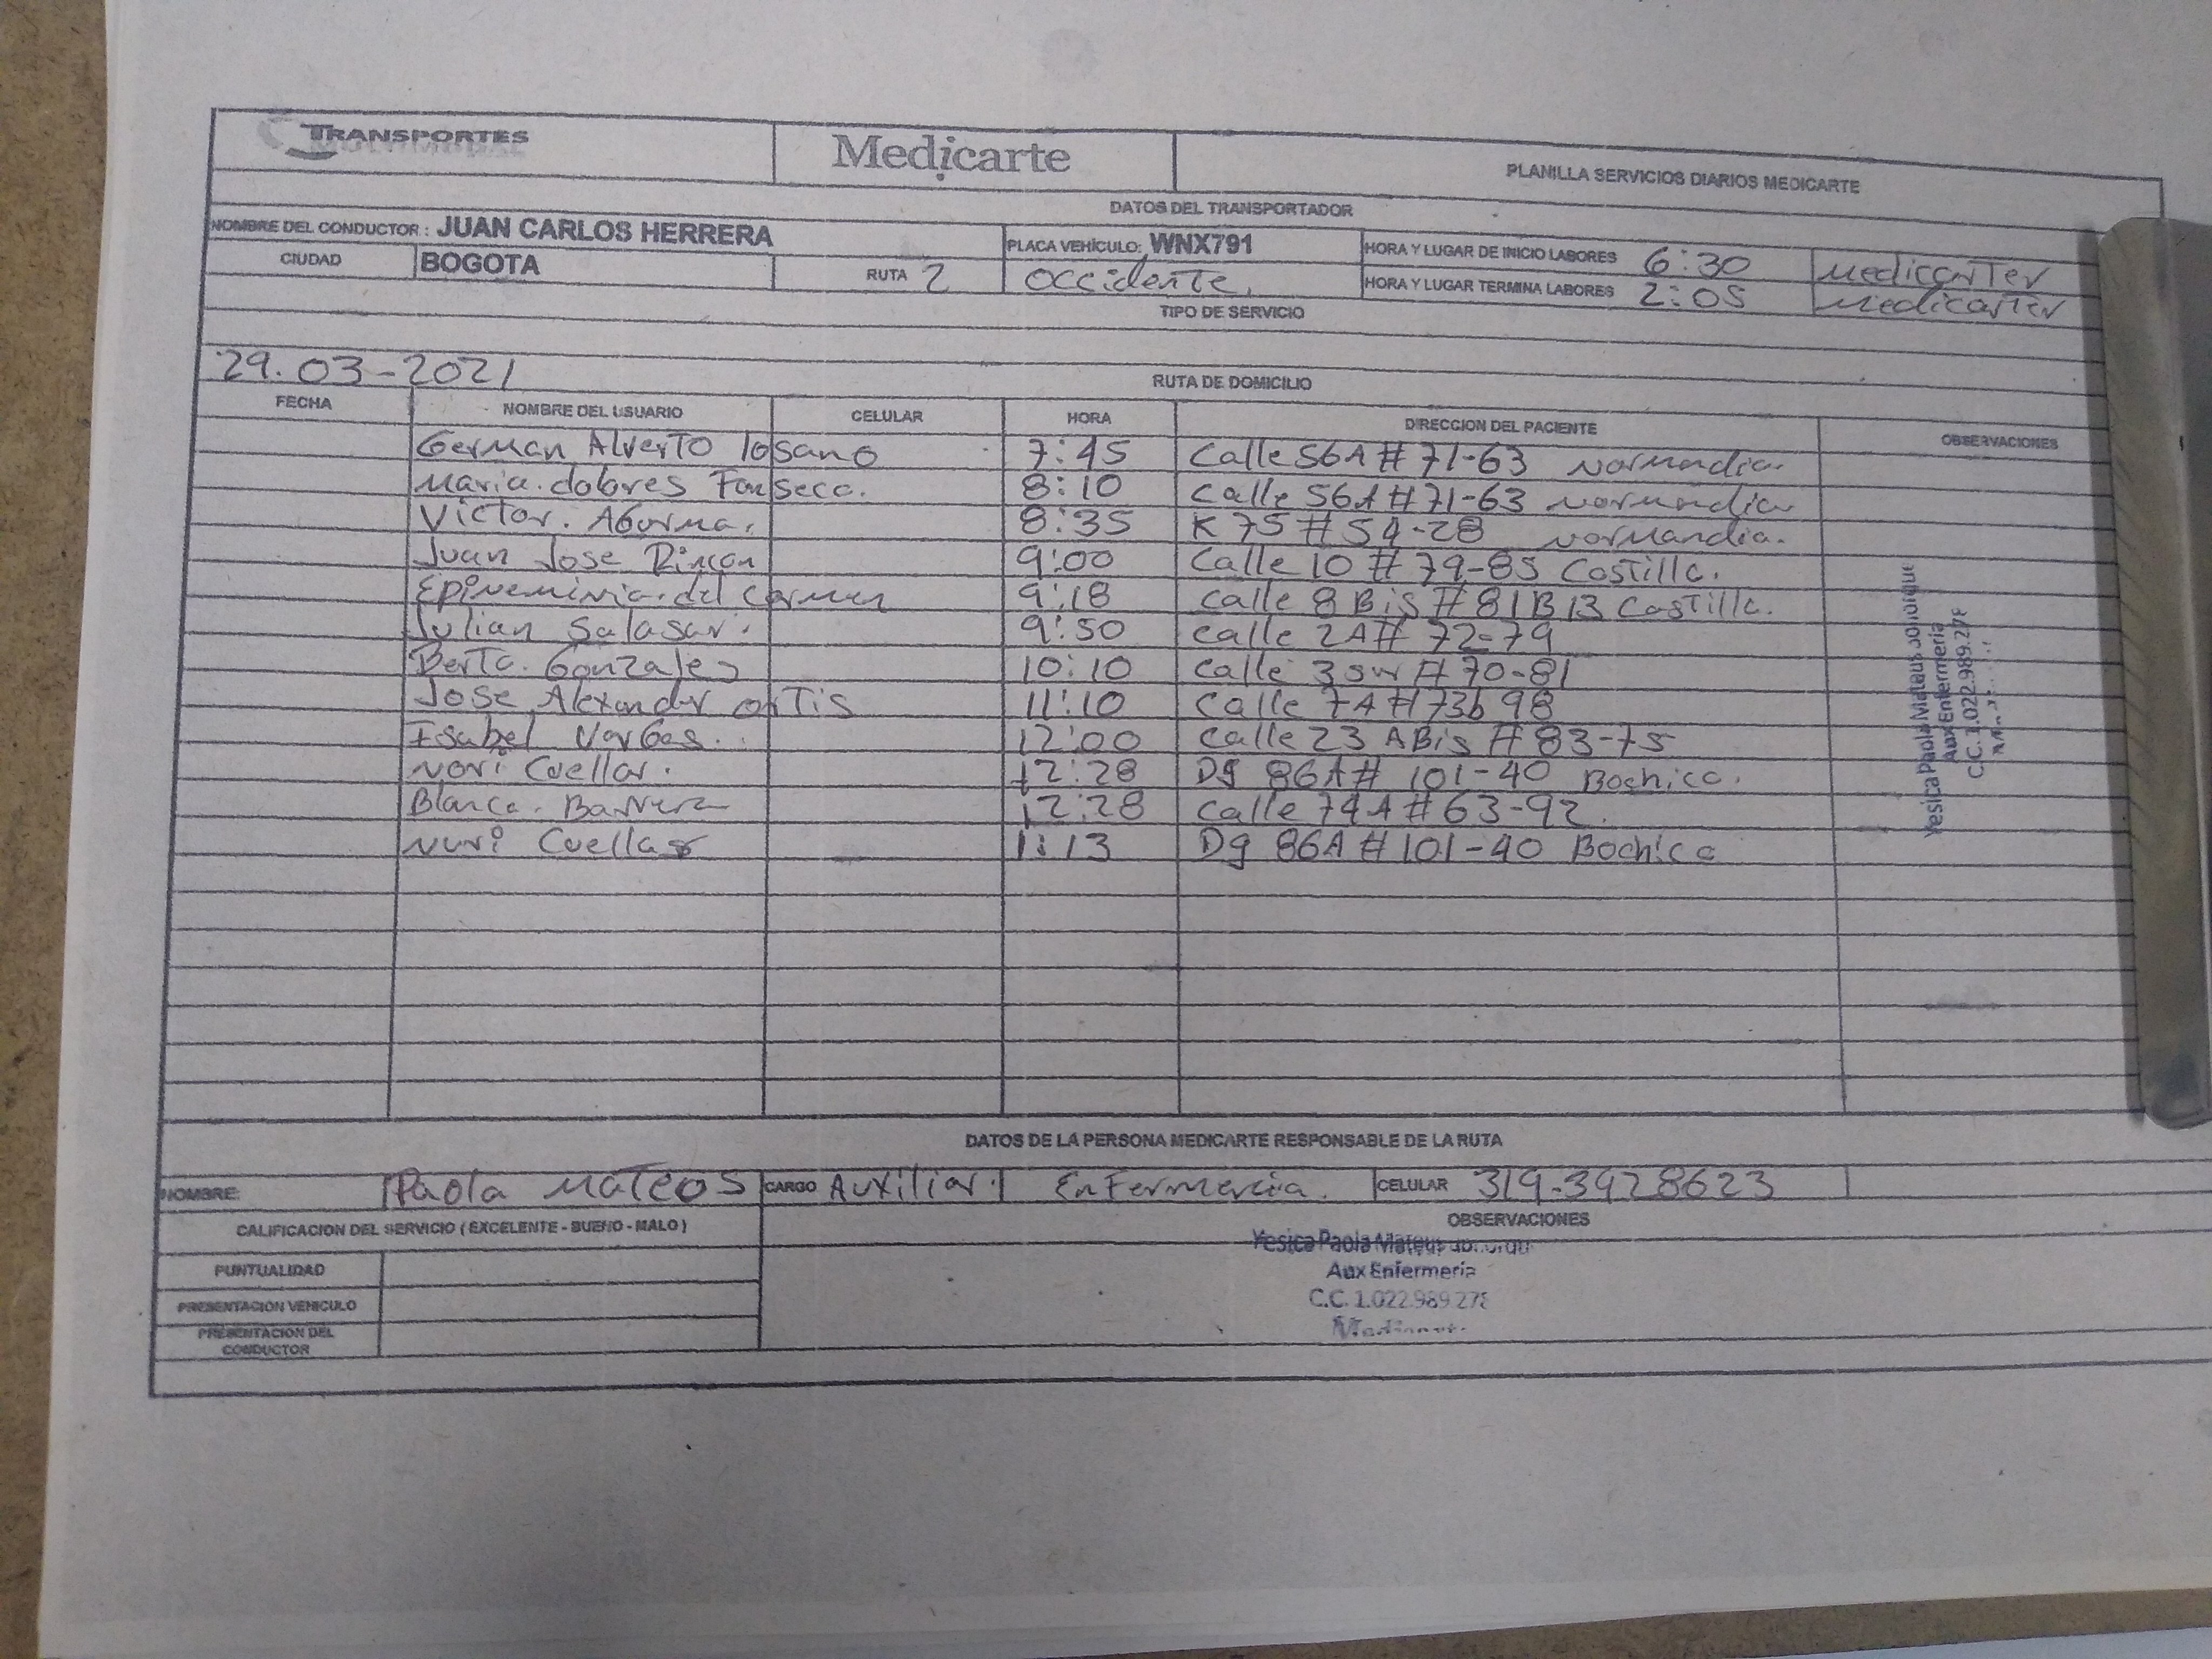 TRANSPORTES Medicarte PLANILLA SERVICIOS DIARIOS MEDICARTE
DATOS DEL TRANSPORTADOR
NOMBRE DEL CONDUCTOR : JUAN CARLOS HERRERA PLACA VEHÍCULO: WNX791 HORA Y LUGAR DE INICIO LABORES 6:30 Medicarter
CIUDAD BOGOTA RUTA 2 Occidente. HORA Y LUGAR TERMINA LABORES 2:05 Medicarter
TIPO DE SERVICIO
29.03-2021
RUTA DE DOMICILIO
FECHA NOMBRE DEL USUARIO CELULAR HORA DIRECCION DEL PACIENTE OBSERVACIONES
German Alverto losano 7:45 Calle 56A # 71-63 normandia.
Maria. dolores Fonseca. 8:10 Calle 56A # 71-63 normandia
Victor. 8:35 K 75 # 54-28 normandia.
Juan Jose Rincon 9:00 Calle 10 # 79-85 Castilla.
del Carmen 9:18 Calle 8 Bis # 81B 13 Castilla.
Julian Salasar. 9:50 Calle 2A # 72-79
Berta. Gonzales 10:10 Calle 3 sur # 70-81
Jose Alexander ortis 11:10 Calle 7A # 73b 98
Isabel Vargas.. 12:00 Calle 23 ABis # 83-75
nori Cuellar. 12:28 Dg 86A # 101-40 Bochica.
Blanca. Barrera 12:28 Calle 74A # 63-92.
nuri Cuellar 1:13 Dg 86A # 101-40 Bochica
Yesica Paola Mateus
Aux Enfermeria
C.C. 1.022.989.278
DATOS DE LA PERSONA MEDICARTE RESPONSABLE DE LA RUTA
NOMBRE: Paola MATEOS CARGO Auxiliar. EnFermercia. CELULAR 319-3928623
CALIFICACION DEL SERVICIO ( EXCELENTE - BUENO - MALO ) OBSERVACIONES
PUNTUALIDAD
PRESENTACION VEHICULO
PRESENTACION DEL CONDUCTOR
Yesica Paola Mateus
Aux Enfermeria
C.C. 1.022.989.278